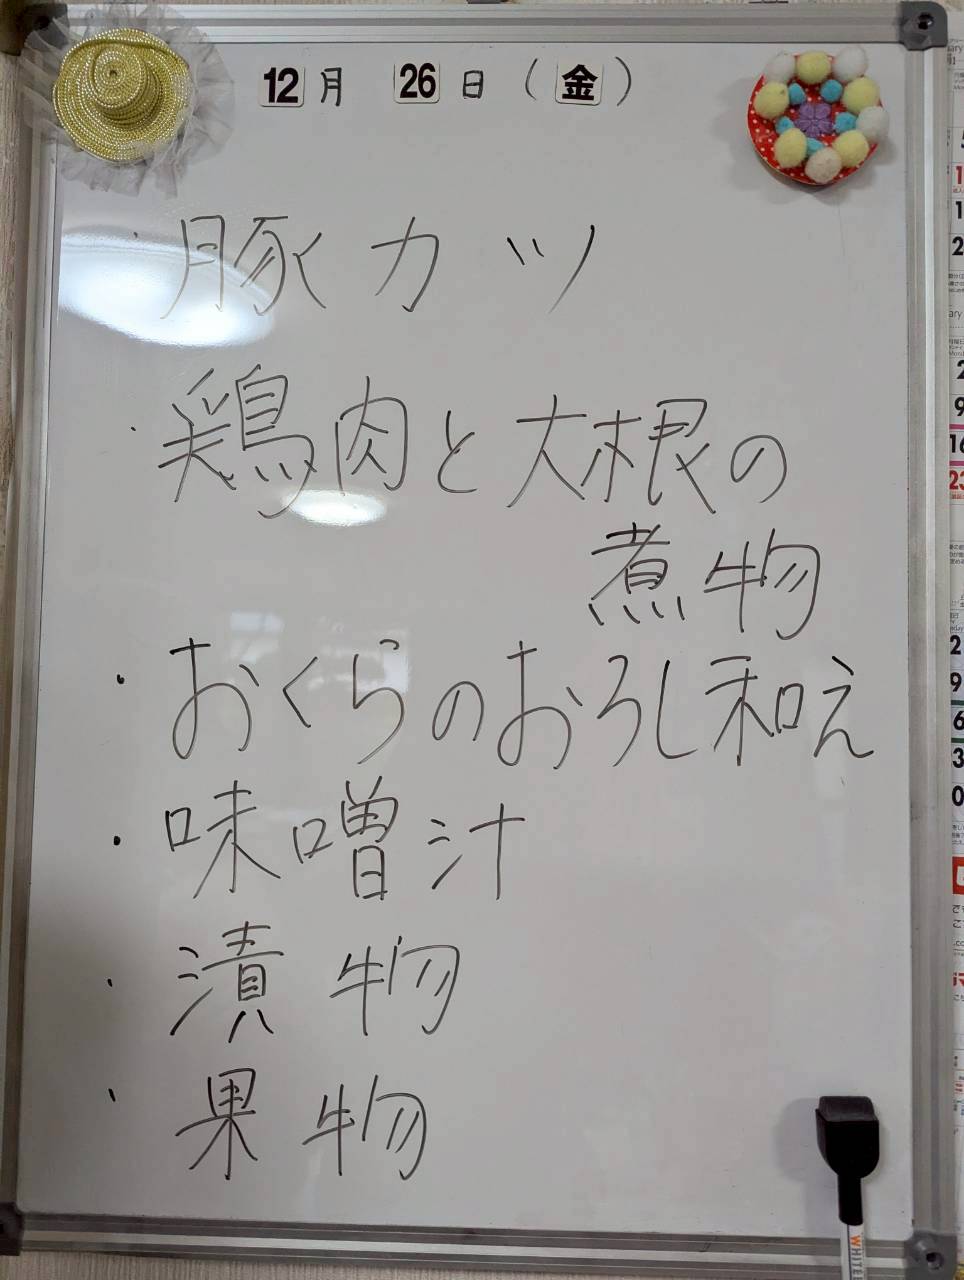 12月 26日（金）
・豚カツ
・鶏肉と大根の
煮物
・おくらのおろし和え
・味噌汁
・漬物
・果物
WHITE